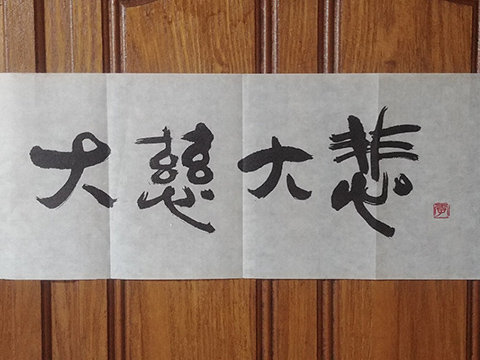 大慈大悲